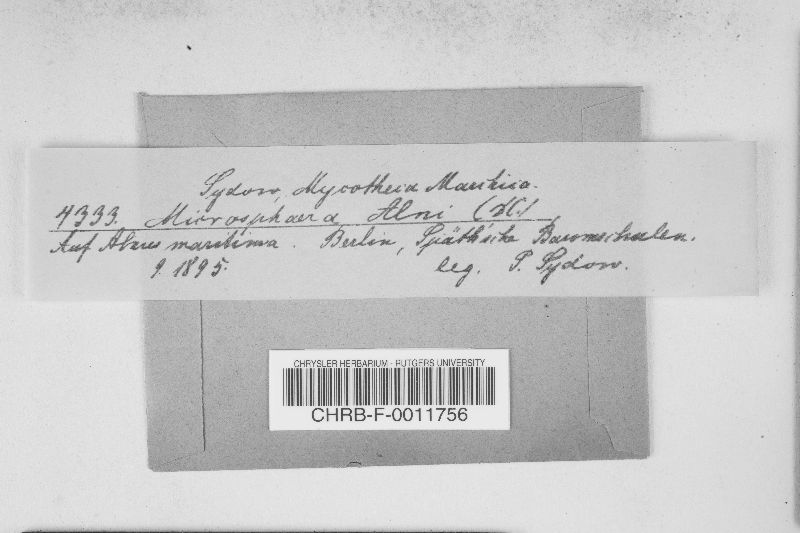 Sydow, Mycotheca Marchica.
4333. Microsphaera Alni (DC.)
Auf Alnus maritima. Berlin, Späth'sche Baumschulen.
9. 1895. leg. P. Sydow.
CHRYSLER HERBARIUM - RUTGERS UNIVERSITY
CHRB-F-0011756